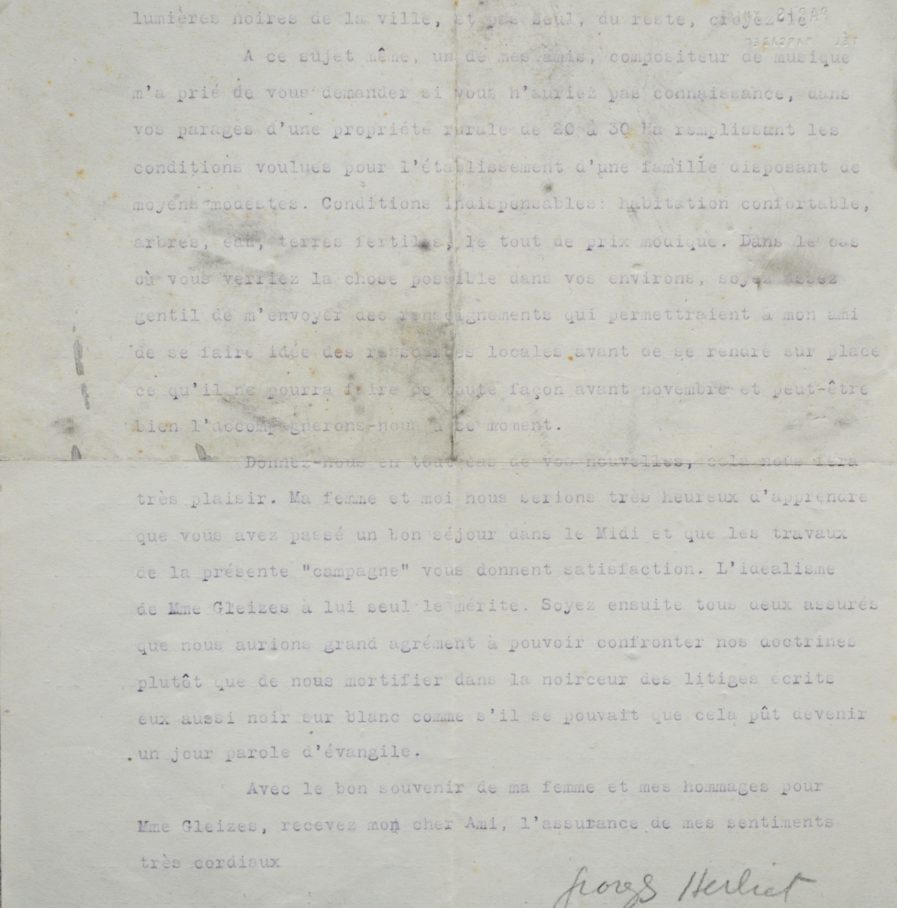 lumières noires de la ville, et pas seul, du reste, croyez le
A ce sujet même, un de mes amis, compositeur de musique
m'a prié de vous demander si vous n'auriez pas connaissance, dans
vos parages d'une propriété rurale de 20 à 30 Ha remplissant les
conditions voulues pour l'établissement d'une famille disposant de
moyens modestes. Conditions indispensables: habitation confortable,
arbres, eau, terres fertiles, le tout de prix modique. Dans le cas
où vous verriez la chose possible dans vos environs, soyez assez
gentil de m'envoyer des renseignements qui permettraient à mon ami
de se faire idée des ressources locales avant de se rendre sur place
ce qu'il ne pourra faire de toute façon avant novembre et peut-être
bien l'accompagnerons-nous à ce moment.
Donnez-nous en tout cas de vos nouvelles, cela nous fera
très plaisir. Ma femme et moi nous serions très heureux d'apprendre
que vous avez passé un bon séjour dans le Midi et que les travaux
de la présente "campagne" vous donnent satisfaction. L'idéalisme
de Mme Gleizes à lui seul le mérite. Soyez ensuite tous deux assurés
que nous aurions grand agrément à pouvoir confronter nos doctrines
plutôt que de nous mortifier dans la noirceur des litiges écrits
eux aussi noir sur blanc comme s'il se pouvait que cela pût devenir
un jour parole d'évangile.
Avec le bon souvenir de ma femme et mes hommages pour
Mme Gleizes, recevez mon cher Ami, l'assurance de mes sentiments
très cordiaux
Georges Herbiet